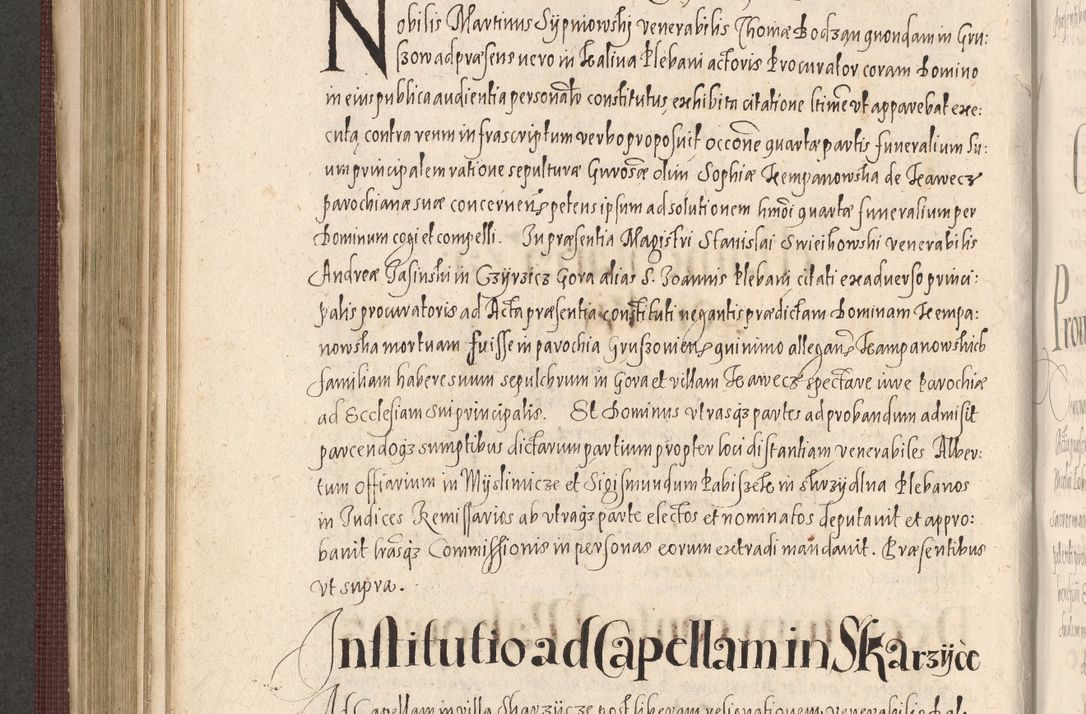 Nobilis Martinus Sÿpniowskj venerabilis Thomæ Bodzan quondam in Gru:
szow ad præsens vero in Kalina Plebani actoris Procurator coram Domino
in eius publica audientia personalr constitutus, exhibita citatione ltime vt apparebat exe:
cuta, contra reum infrascriptum verbo proposuit occone quartæ partis funeralium su:
um principalem ratione sepulturæ Gnrosæ olim Sophiæ Kempanowska de Kawecz
parochianæ suæ concernens petens ipsum ad solutionem hmoi quartæ funeralium per
Dominum cogi et compelli. In præsentia Magistri Stanislai Swieikowski venerabilis
Andreæ Gasinski in Czÿrzicz Gora alias S. Joannis Plebani citati ex adverso princi:
palis procuratoris ad Acta præsentia constituti negantis prædictam Dominam Kempa:
nowska mortuam fuisse in parochia Gruszoviens quinimo allegans Kampanowskich
familiam habere suum sepulchrum in Gora et villam Kawecz spectare iure Parochiæ
ad Ecclesiam sui principalis. Et Dominus vtrasqz partes ad probandum admisit
parcendoqz sumptibus dictarum partium propter loci distantiam venerabiles Alber:
tum Offiarium in Mÿslimicze et Sigismundum Babiszek in skrzÿdlna Plebanos
in Judices Remissarios ab vtraqz parte electos et nominatos deputavit et appro:
bavit lrasqz Commissionis in personas eorum extradi mandavit. Præsentibus
vt supra.
Institutio ad Capellam in Skarzÿce
Ad Capellam in villa Skarzÿcze post liberam resignationem venerabilis Bal: